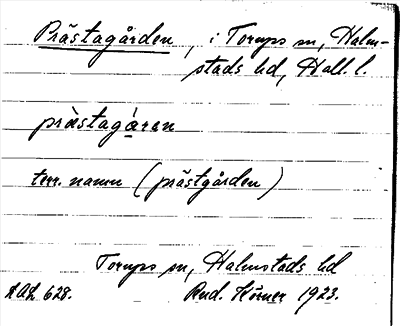 Prästagården, i Torups sn, Halm-
stads hd, Hall. l.
prästagåran
terr. namn (prästgården)
Torups sn, Halmstads hd
LAL 628. Rud. Körner 1923.